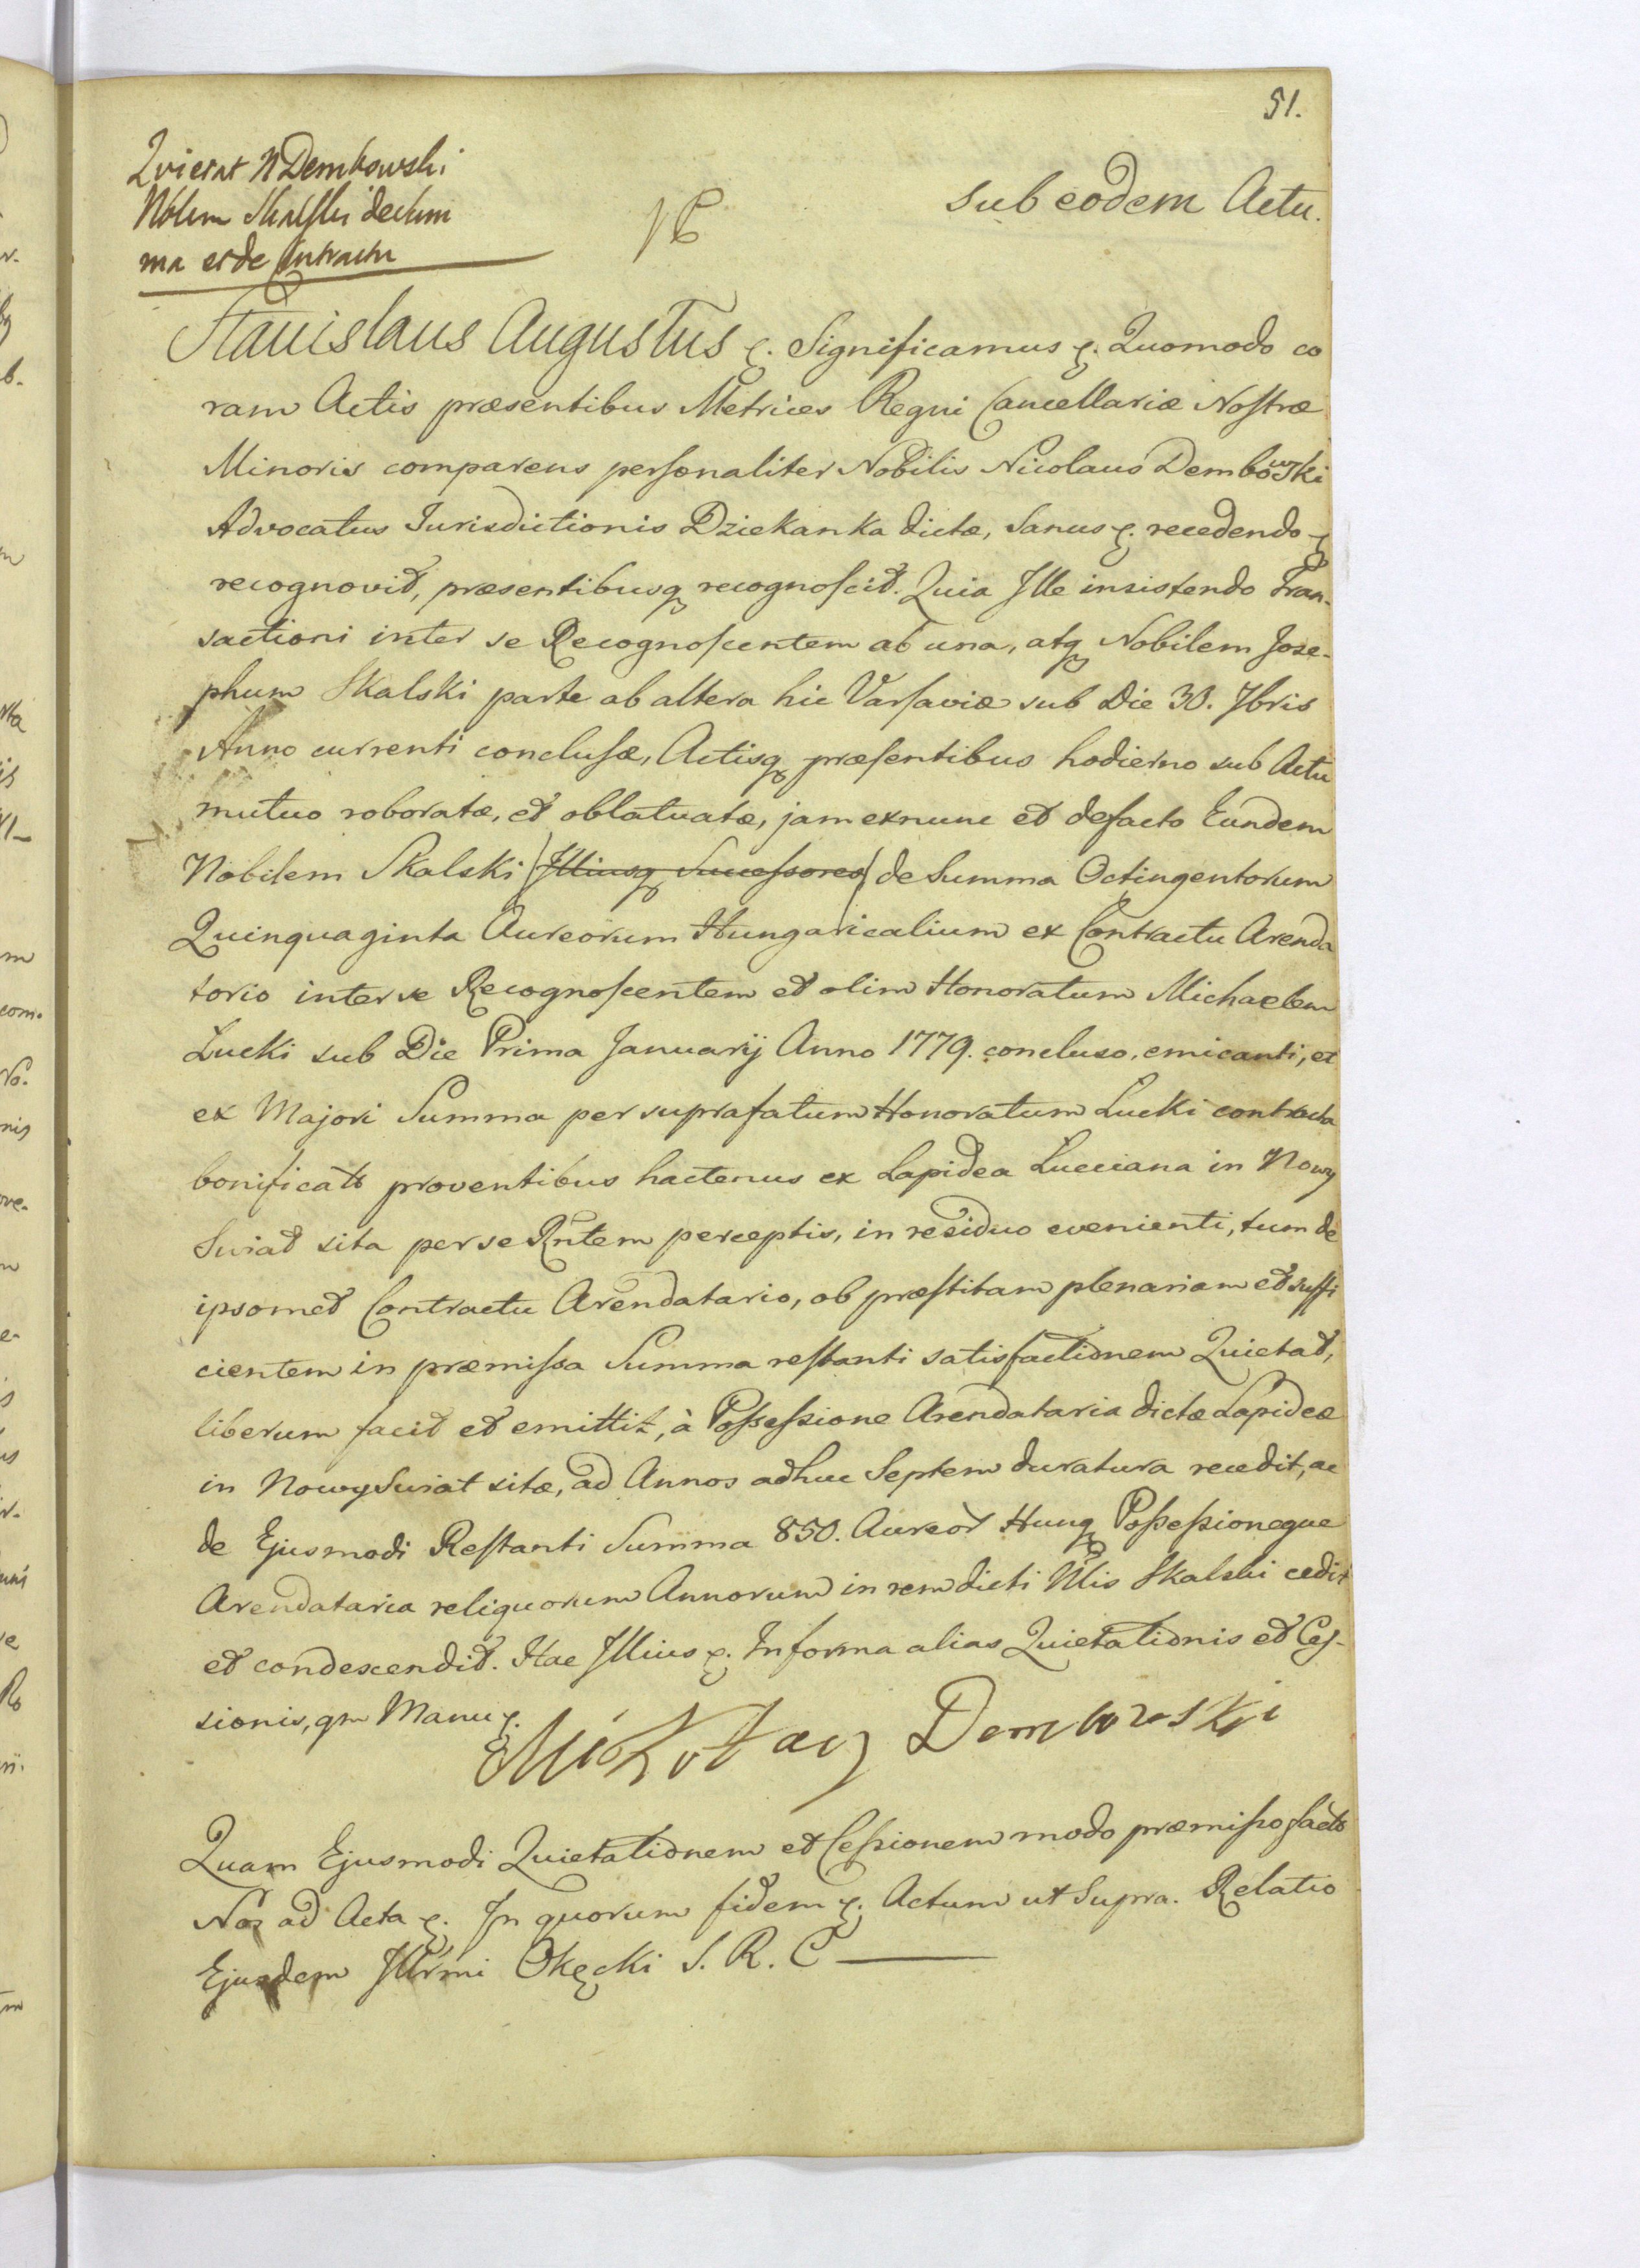 51.
Quietat N Dembowski
Nblem Skalski de Sum
ma et de Contractu
sub eodem Actu.
Stanislaus Augustus &. Significamus &. Quomodo co
ram Actis præsentibus Metrices Regni Cancellariæ Nostræ
Minoris comparens personaliter Nobilis Nicolaus Dembowski
Advocatus Jurisdictionis Dziekanka dictæ, Sanus &. recedendo &
recognovit, præsentibusq recognoscit. Quia Ille insistendo Tran-
sactioni inter se Recognoscentem ab una, atq Nobilem Jose-
phum Skalski parte ab altera hic Varsaviæ sub Die 30. 7bris
Anno currenti conclusæ, Actisq præsentibus hodierno sub Actu
mutuo roboratæ, et oblatuatæ, jam exnunc et defacto Eundem
Nobilem Skalski (Illiusq Successores) de Summa Octingentorum
Quinquaginta Aureorum Hungaricalium ex Contractu Arenda
torio inter se Recognoscentem et olim Honoratum Michaelem
Lucki sub Die Prima Januarij Anno 1779. concluso, emicanti, et
ex Majori Summa per suprafatum Honoratum Lucki contracta
bonificatis proventibus hactenus ex Lapidea Lucciana in Nowy
Swiat sita per se Rntem perceptis, in residuo evenienti, tum de
ipsomet Contractu Arendatario, ob præstitam plenariam et suffi
cientem in præmissa Summa restanti satisfactionem Quietat,
liberum facit et emittit, à Possessione Arendataria dictæ Lapideæ
in Nowy Swiat sitæ, ad Annos adhuc Septem duratura recedit, ac
de Ejusmodi Restanti Summa 850. Aureor Hung Possessioneque
Arendataria reliquorum Annorum in rem dicti Nlis Skalski cedit
et condescendit. Hac Illius &. In forma alias Quietationis et Ces-
sionis, qm Manu &.
Mikołay Dembowski
Quam Ejusmodi Quietationem et Cessionem modo præmisso factã
Nos ad Acta &. In quorum fidem &. Actum ut Supra. Relatio
Ejusdem Illrmi Okęcki S. R. C